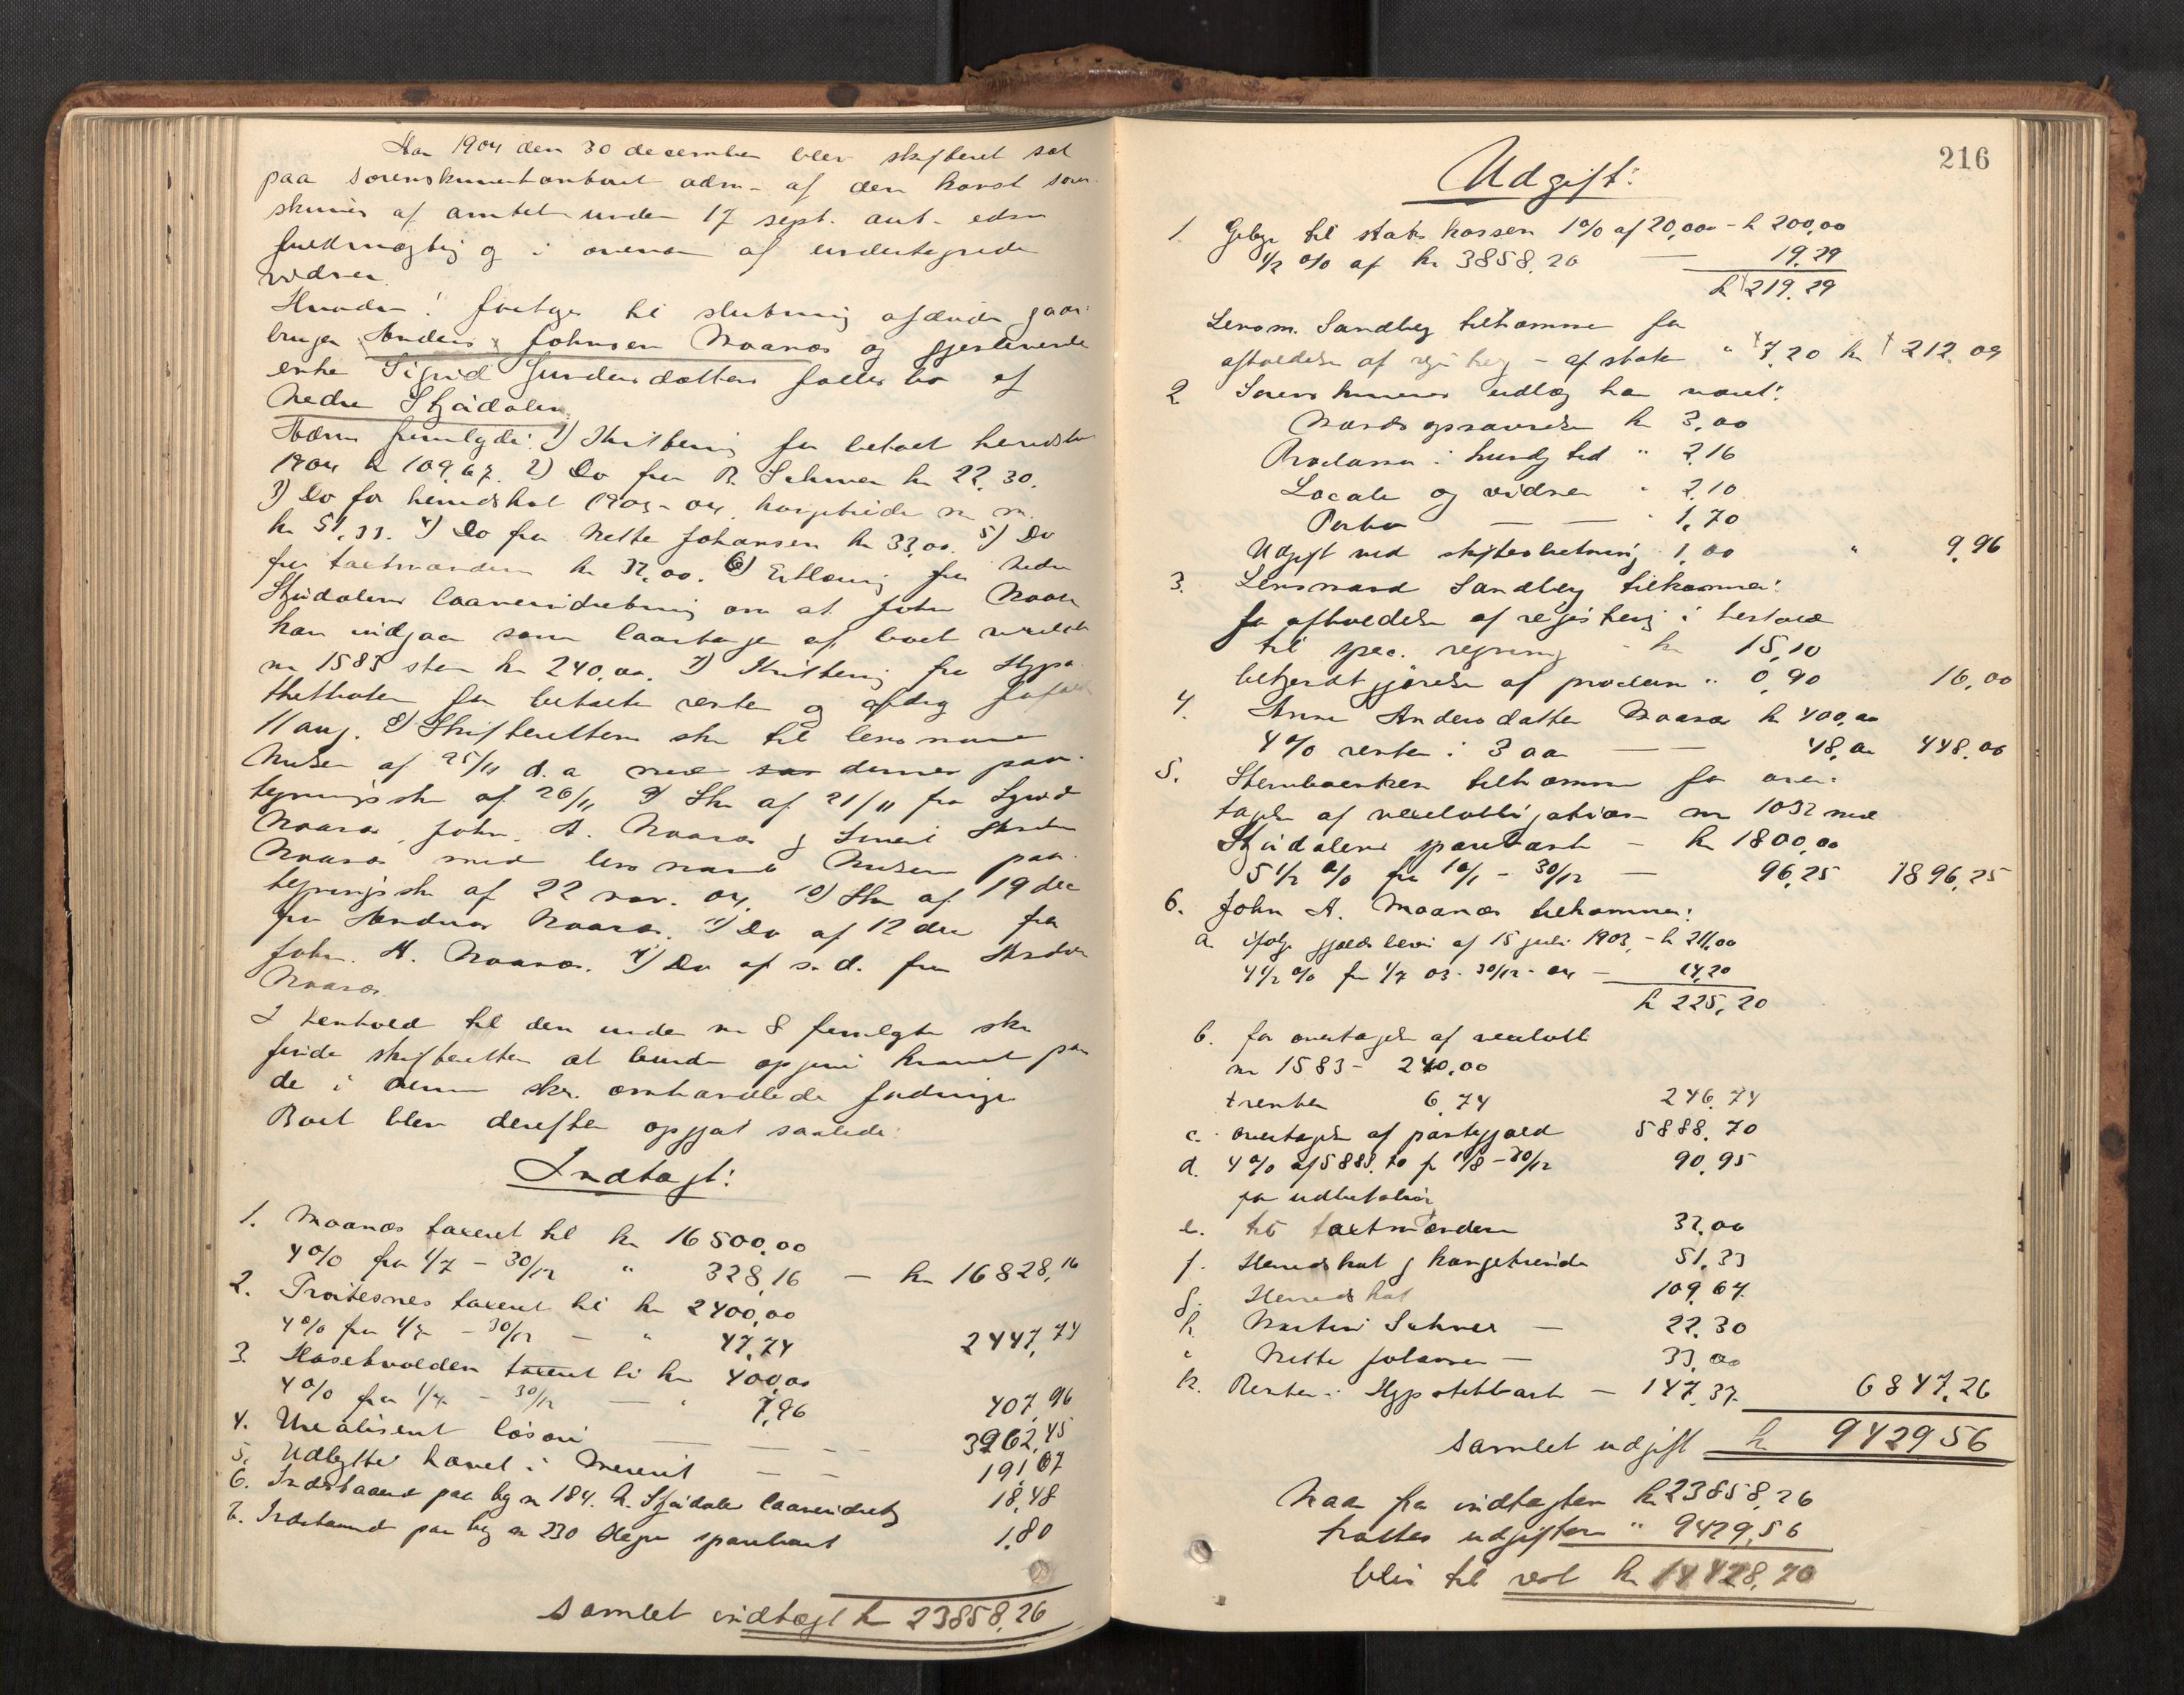 Aar 1904 den 30 december blev skifteret sat
paa sorenskriverkontoret adm. af den konst. soren-
skriver af amtet under 17 sept. aut. edsv.
fuldmægtig og i overvær af undertegnede
vidner.
Hvorda! foretoges til slutning afdøde gaard-
bruger Anders Johnsen Maanæs og gjenlevende
enke Sigrid Gundersdatters fælles bo af
Nedre Stjørdalen.
Adm. fremlagde: 1) Kvittering for betalt herredsskat
1904 kr 109,67. 2) Do fra R. Schive kr 22,30.
3) Do for herredskat 1903-04, kornetiende m. m.
kr 51,33. 4) Do fra Nette Johansen kr 33,00. 5) Do
fra taxtmændene kr 32,00. 6) Erklæring fra Nedre
Stjørdalens laaneindretning om at John Maanæs
kan indgaa som laantager af boet vexelobl.
nr 1583 stor kr 240,00. 7) Kvittering fra Hypo-
thekbanken for betalte renter og afdrag forfaldt
11 aug. 8) Skifterettens skr til lensmand
Nielsen af 25/11 d. a. med dennes paa-
tegningsskr af 26/11 9) Skr af 21/11 fra Sigrid
Maanæs, John A. Maanæs og Anders
Maanæs med lensmand Nielsens paa-
tegningsskr af 22 nov. 04. 10) Skr af 19 dec
fra Andreas Maanæs. 11) Do af 12 dec fra
John A. Maanæs. 4) Do af s. d. fra Anders
Maanæs.
I henhold til den under nr 8 fremlagte skr
fandt skifteretten at burde opgive kravet paa
de i denne skr. omhandlede fordringer.
Boet blev derefter opgjort saaledes:
Indtægt:
1. Maanæs taxeret til kr 16500,00
4% fra 1/7 – 30/12 " 328,16 — kr 16828,16
2. Troitesnes taxeret til kr 2400,00
4% fra 1/7 – 30/12 — " 47,74 2447,74
3. Hasetvolden taxeret til kr 400,00
4% fra 1/7 – 30/12 — " 7,96 407,96
4. Urealiseret løsøre — — — 3962,45
5. Udbytte havet i Meieriet — — 191,67
6. Indestaaende paa bog nr 184. N. Stjørdalens laaneindretn. 18,48
7. Indestaaende paa bog nr 230 Hegre sparebank 1,80
Samlet indtægt kr 23858,26
216
Udgift:
1 Gebyr til statskassen 1% af 20,000 – kr 200,00
1/2 % af kr 3858,26 — 19,29
kr 219,29
Lensm. Sandberg tilkommer for
afholdelse af registrering – af staten " 7,20 kr 212,09
2 Sorenskriverens udlæg har været:
Mandsopnævnelse kr 3,00
Proclama i kundg. tid " 2,16
Locale og vidner " 2,10
Porto — — " 1,70
Udgift ved skifteslutning 1,00 " 9,96
3. Lensmand Sandberg tilkommer:
for afholdelse af registrering i henhold
til spec. regning – kr 15,10
bekjendtgjørelse af proclama " 0,90 16,00
4. Anne Andersdatter Maanæs kr 400,00
4% renter i 3 aar — — 48,00 448,00
5. Stenbverken tilkommer for over-
tagelse af vexelobligation nr 1032 med
Stjørdalens sparebank – kr 1800,00
5 1/2 % fra 10/1 – 30/12 — 96,25 1896,25
6. John A. Maanæs tilkommer:
a. ifølge gjeldsbrev af 15 juli 1903 – kr 211,00
4 1/2 % fra 1/7 03 – 30/12 – 04 — 14,20
kr 225,20
b. for overtagelse af vexelobl
nr 1583 – 240,00
+ renter 6,74 246,74
c. overtagelse af pantegjæld 5888,70
d. 4% af 5888,70 fra 11/8 – 30/12 90,95
for udbetalinger
e. til taxtmændene 32,00
f. Herredskat og kornetiende 51,33
g. Herredskat 109,67
h Martin Schive — 22,30
i Nette Johansen — 33,00
k. Renter i Hypothekbank — 147,37 6847,26
samlet udgift kr 9429,56
Naar fra indtægten kr 23858,26
trækkes udgiften " 9429,56
blir til rest kr 14428,70